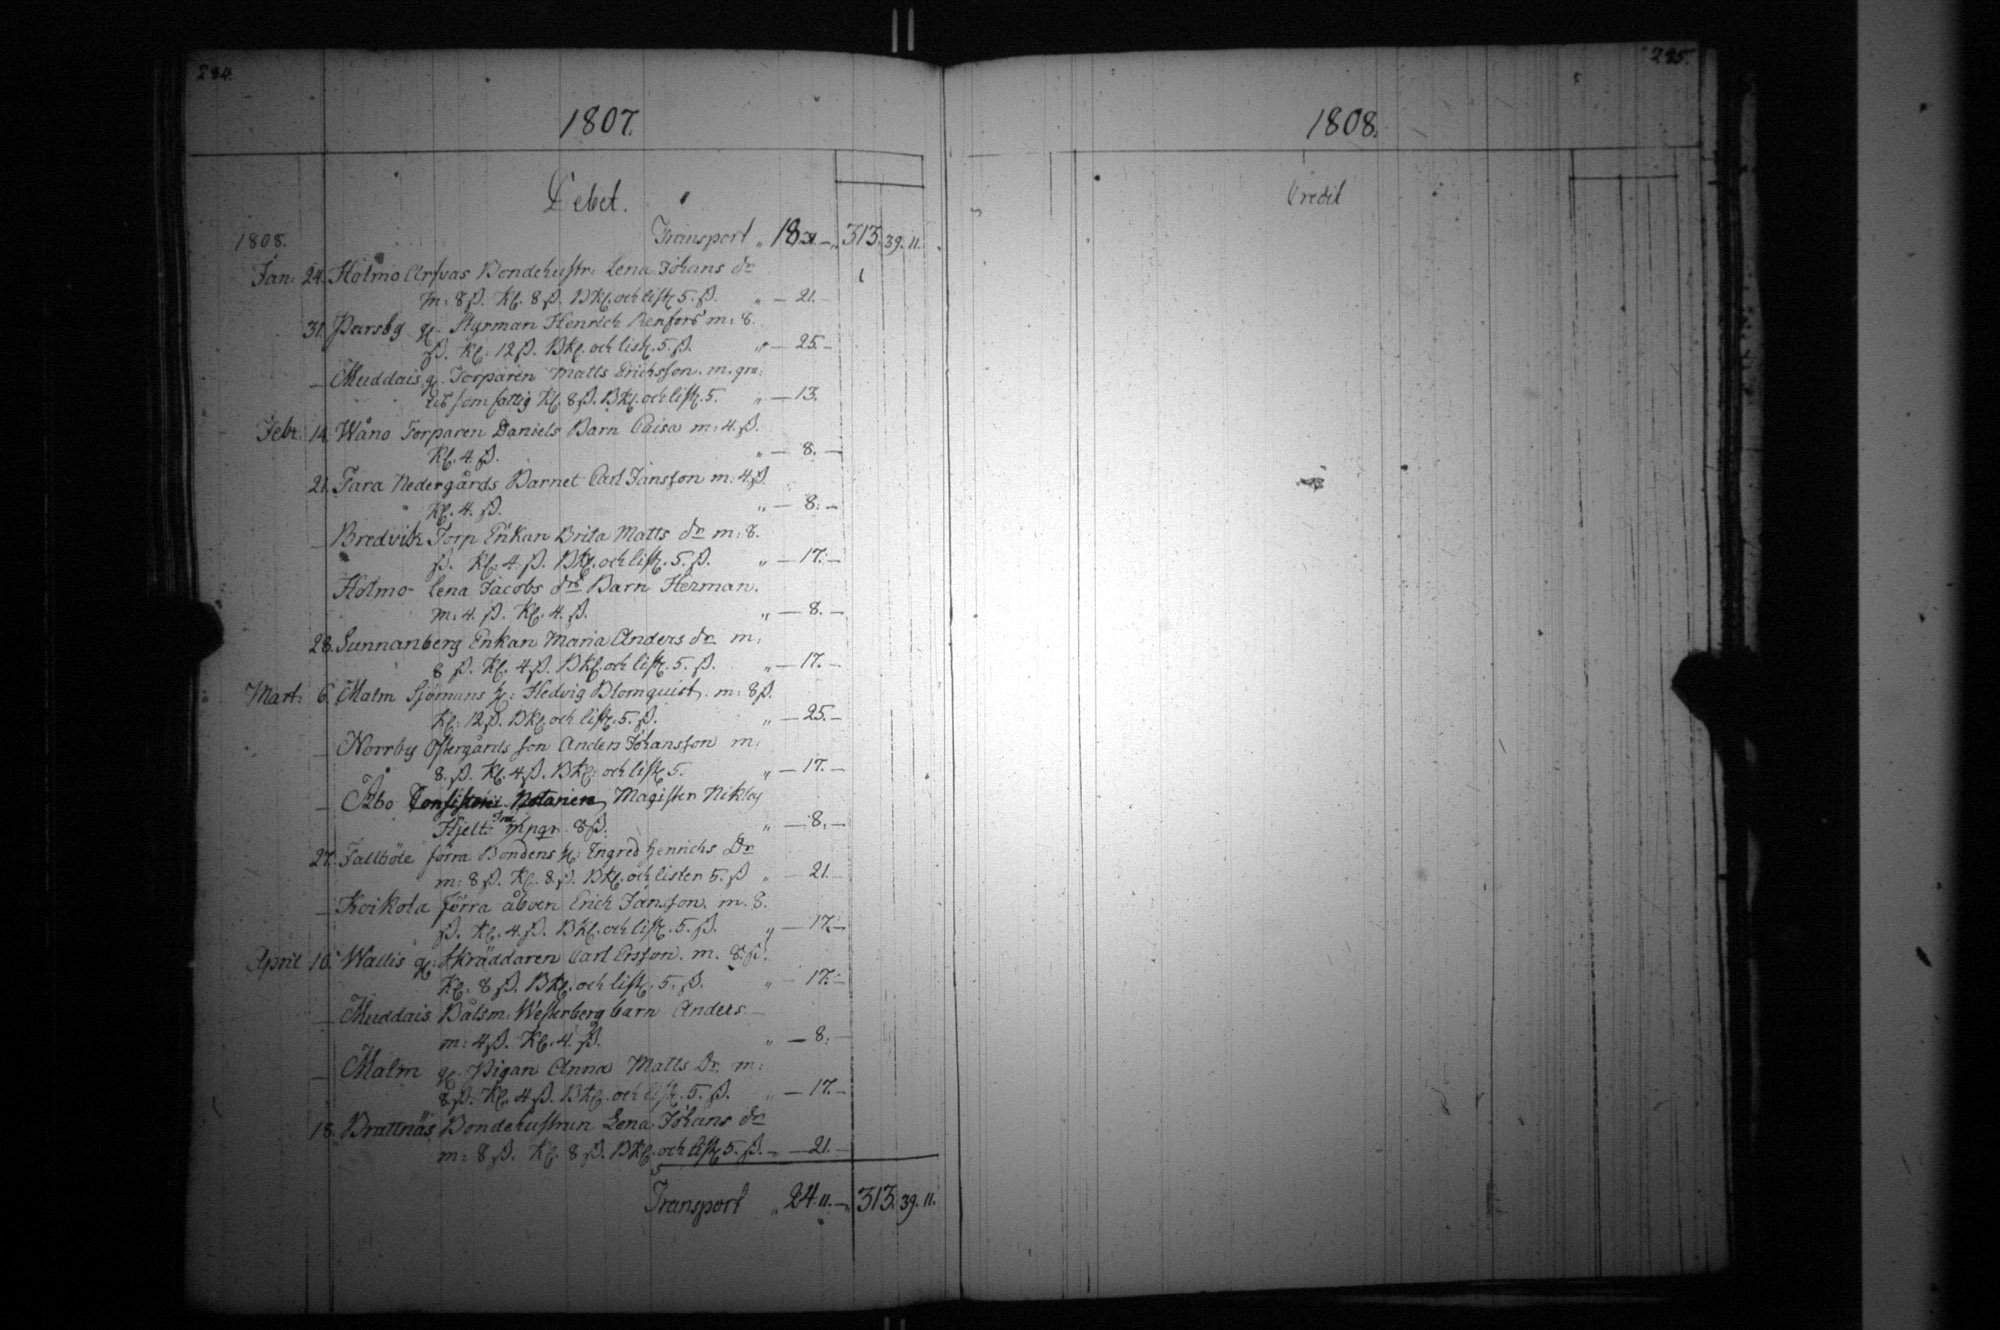 284.
1807.
Debet.
1808. Transport „ 18 „ 313. 39. 11.
Jan: 24. Holmo Arfvas Bondehustr: Lena Johans dr
m: 8 ß. Kl. 8 ß. BKl. och listk. 5. ß. „ — 21. —
31. Parsby Styrman Henrich Renfors m: 8.
ß. Kl: 12 ß. BKl. och listk. 5. ß. „ — 25. —
— Muddais Torparen Matts Erichsson. m. gra-
tis som fattig Kl. 8 ß. BKl. och listk. 5. „ — 13.
Febr. 14. Wåno Torparen Daniels Barn Caisa m: 4. ß.
Kl. 4 ß. „ — 8. —
21. Tara Nedergårds Barnet Carl Jansson m: 4 ß.
Kl. 4. ß. „ — 8: —
— Bredvik Torp Enkan Brita Matts dr m: 8.
ß. Kl: 4. ß. BKl. och listk. 5. ß. „ — 17: —
Holmo- Lena Jacobs drs Barn Herman.
m: 4. ß. Kl. 4. ß. „ — 8. —
28. Sunnanberg Enkan Maria Anders dr m:
8 ß. Kl. 4 ß. BKl. och listk. 5. ß. „ — 17. —
Mart: 6. Malm Sjömans h: Hedvig Blomquist. m: 8 ß.
Kl: 12 ß. BKl. och listk. 5. ß. „ — 25. —
— Norrby Östergårds son Anders Johansson m:
8. ß. Kl. 4 ß. BKl: och listk 5. „ — 17. —
— Åbo Consistorii Notarien Magister Niklas
Hjelt: 8 ß. „ — 8. —
27. Fallböle förra Bondens h: Ingred Henrichs Dr
m: 8 ß. Kl. 8 ß. BKl. och listen 5. ß „ — 21. —
— Koikola förra åboen Erich Jansson. m. 8.
ß. Kl. 4. ß. BKl. och listk. 5. ß. „ — 17: —
April 10. Wallis Skräddaren Carl Ersson. m. 8. ß.
Kl: 8 ß. BKl. och listk. 5. ß. „ — 17: —
— Muddais Båtsm: Westerberg barn Anders —
m: 4 ß. Kl. 4. ß. „ — 8: —
— Malm Pigan Anna Matts Dr. m:
8 ß. Kl. 4 ß. BKl. och listk. 5. ß. „ — 17. —
18. Brattnäs Bondehustrun Lena Johans dr
m: 8 ß. Kl. 8 ß. BKl. och listk 5. ß. — 21. —
Transport „ 24. 11. — 313. 39. 11.
285.
1808.
Credit